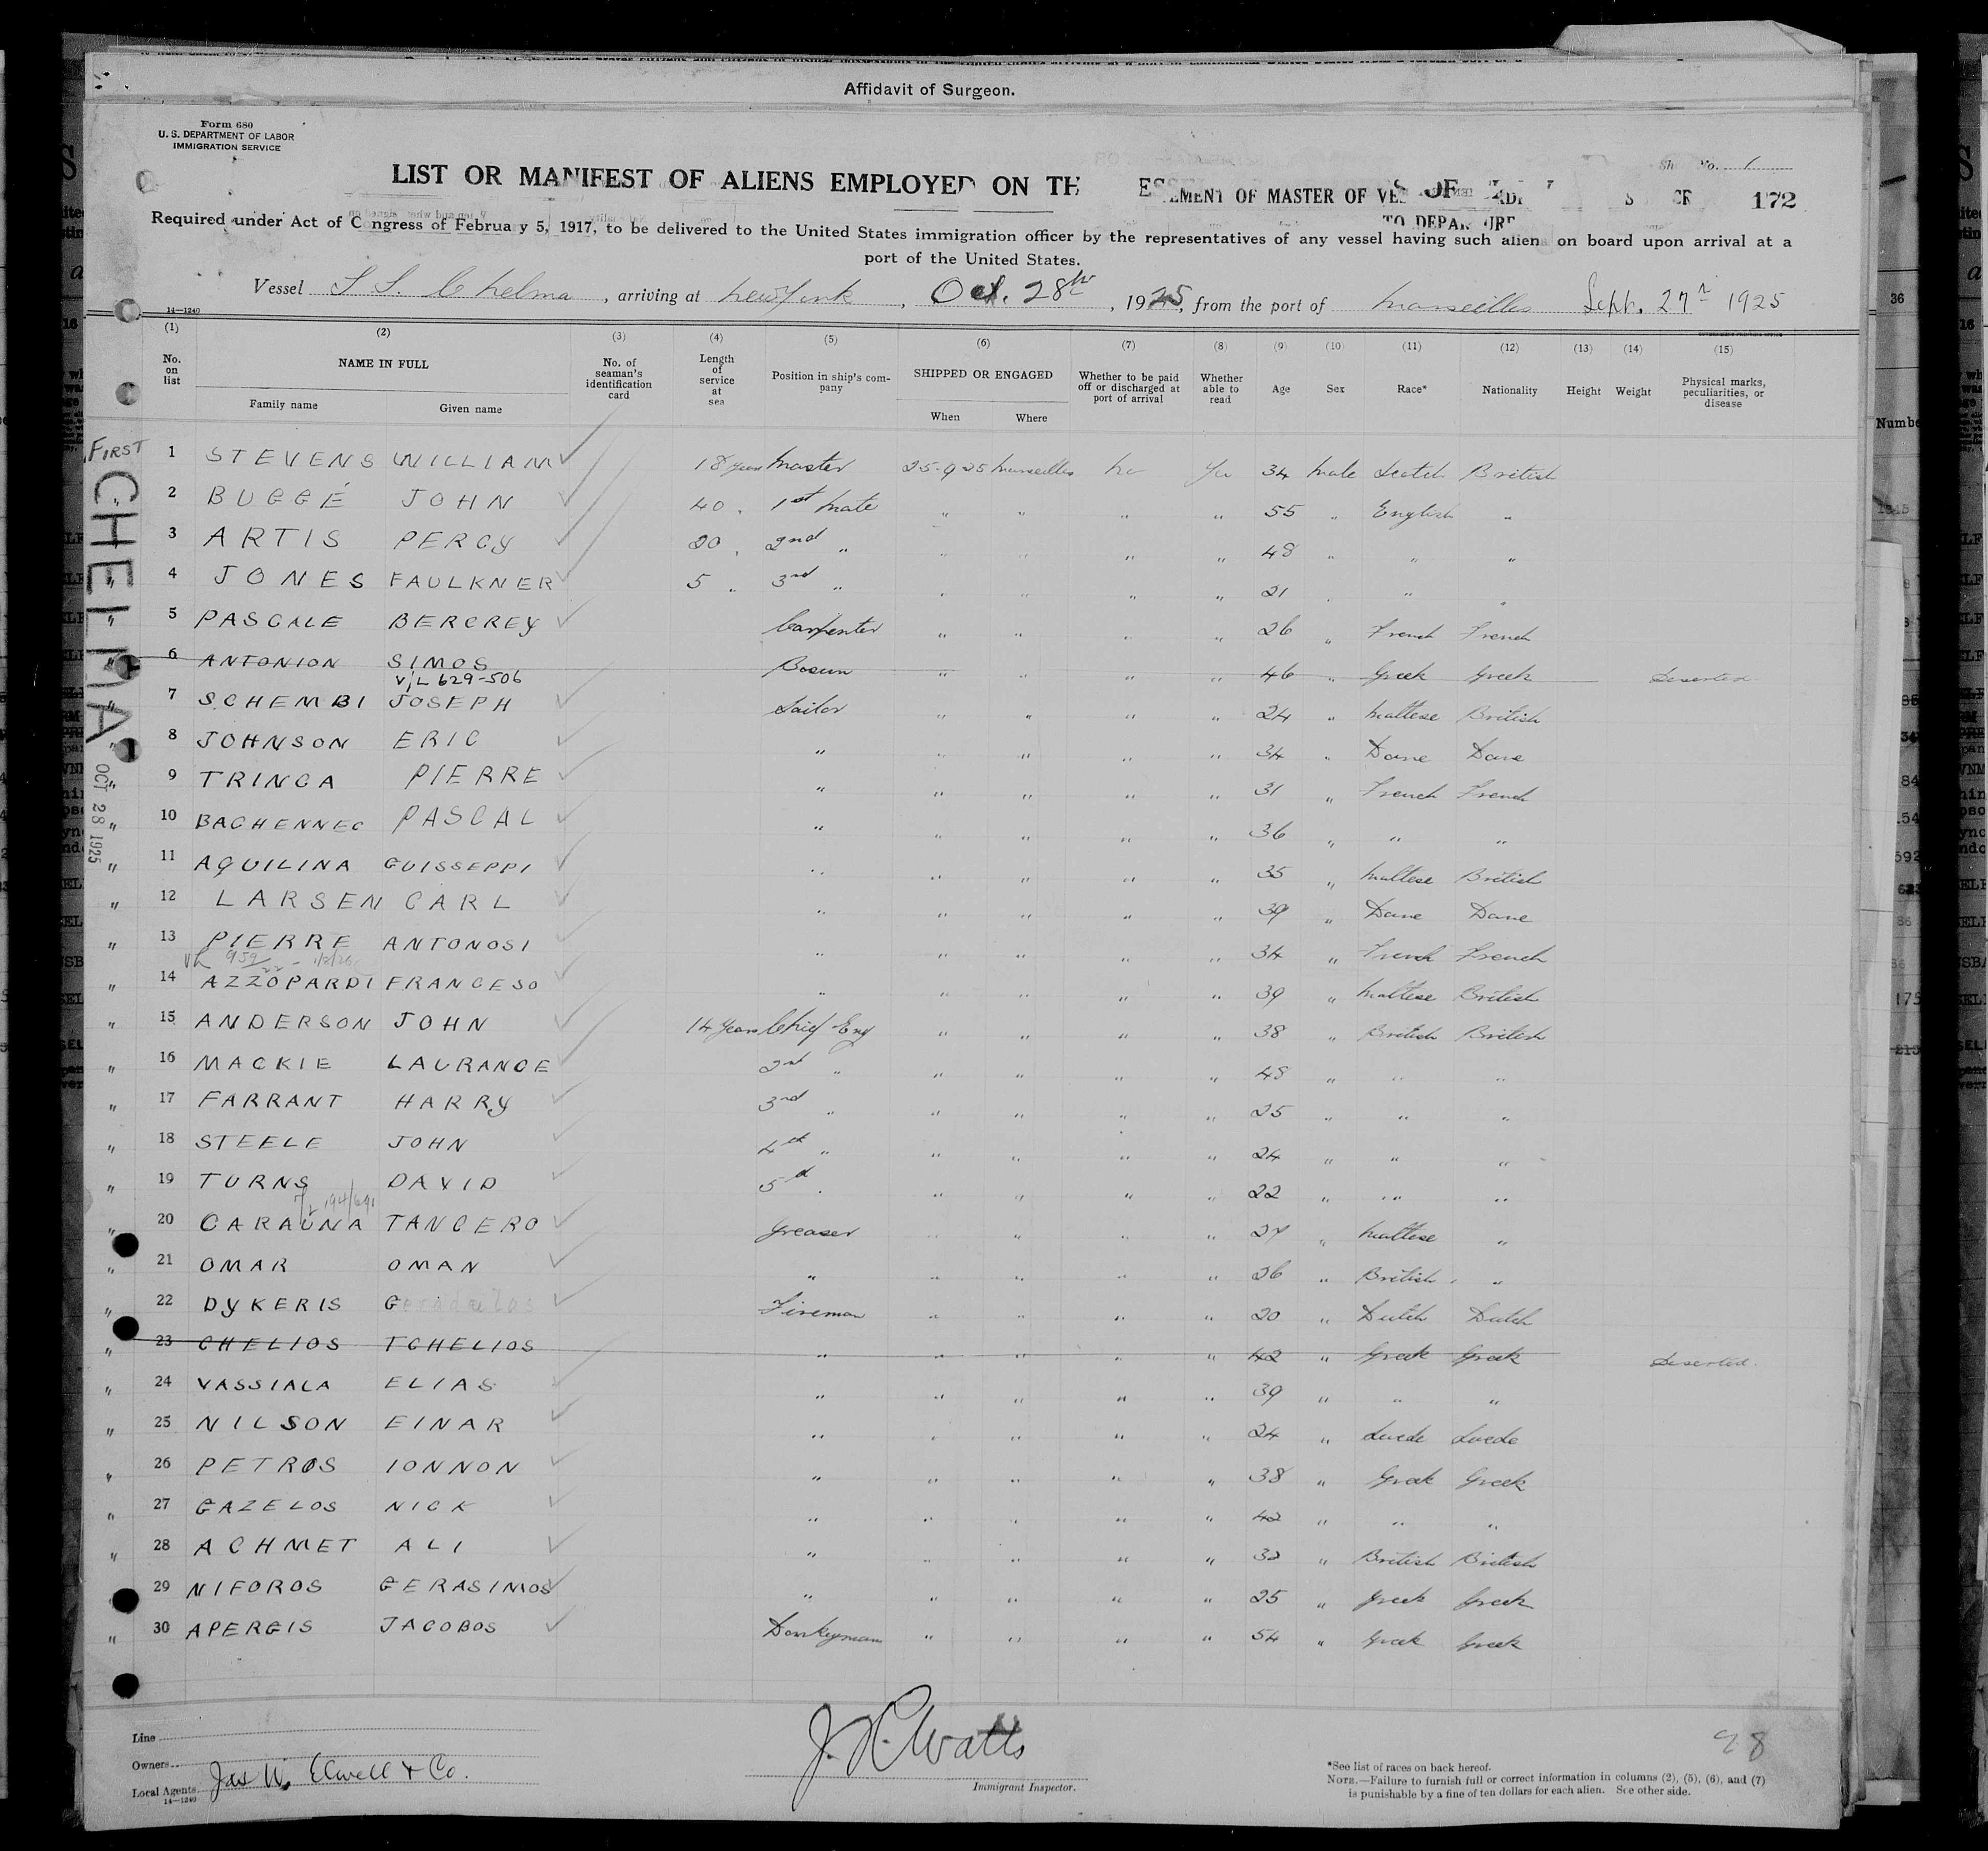 Affidavit of Surgeon.
Form 680
U. S. DEPARTMENT OF LABOR
IMMIGRATION SERVICE
Sh No. 1
LIST OR MANIFEST OF ALIENS EMPLOYED ON TH EMENT OF MASTER OF VES 172
TO DEPARTURE
Required under Act of Congress of February 5, 1917, to be delivered to the United States immigration officer by the representatives of any vessel having such aliens on board upon arrival at a
port of the United States.
Vessel S S. Chelma, arriving at New York, Oct. 28th, 1925, from the port of Marseilles Sept. 27th 1925
14—1240
(1) (2) (3) (4) (5) (6) (7) (8) (9) (10) (11) (12) (13) (14) (15)
No. on list NAME IN FULL Family name Given name No. of seaman's identification card Length of service at sea Position in ship's company SHIPPED OR ENGAGED When Where Whether to be paid off or discharged at port of arrival Whether able to read Age Sex Race* Nationality Height Weight Physical marks, peculiarities, or disease
FIRST
CHELMA
OCT 28 1925
1 STEVENS WILLIAM 18 years Master 25-9 25 Marseilles No Yes 34 Male Scotch British
2 BUGGÉ JOHN 40 " 1st Mate " " " " 55 " English "
3 ARTIS PERCY 20 " 2nd " " " " " 48 " " "
4 JONES FAULKNER 5 " 3rd " " " " " 21 " " "
5 PASCALE BERCREY Carpenter " " " " 26 " French French
6 ANTONION SIMOS Bosun " " " " 46 " Greek Greek Deserted
V/L 629-506
7 SCHEMBI JOSEPH Sailor " " " " 24 " Maltese British
8 JOHNSON ERIC " " " " " 34 " Dane Dane
9 TRINCA PIERRE " " " " " 31 " French French
10 BACHENNEC PASCAL " " " " " 36 " " "
11 AQUILINA GUISSEPPI " " " " " 35 " Maltese British
12 LARSEN CARL " " " " " 39 " Dane Dane
13 PIERRE ANTONOSI " " " " " 34 " French French
14 AZZOPARDI FRANCESO " " " " " 39 " Maltese British
15 ANDERSON JOHN 14 years Chief Eng " " " " 38 " British British
16 MACKIE LAURANCE 2nd " " " " " 48 " " "
17 FARRANT HARRY 3rd " " " " " 25 " " "
18 STEELE JOHN 4th " " " " " 24 " " "
19 TURNS DAVID 5th " " " " " 22 " " "
20 CARAUNA TANCERO Greaser " " " " 27 " Maltese "
21 OMAR OMAN " " " " " 26 " British "
22 DYKERIS Fireman " " " " 20 " Dutch Dutch
23 CHELIOS TCHELIOS " " " " " 42 " Greek Greek Deserted.
24 VASSIALA ELIAS " " " " " 39 " " "
25 NILSON EINAR " " " " " 24 " Swede Swede
26 PETROS IONNON " " " " " 38 " Greek Greek
27 GAZELOS NICK " " " " " 42 " " "
28 ACHMET ALI " " " " " 32 " British British
29 NIFOROS GERASIMOS " " " " " 25 " Greek Greek
30 APERGIS JACOBOS Donkeyman " " " " 54 " Greek Greek
98
Line
Owners
Local Agents Jas W. Elwell & Co.
14—1240
J. R. Watts
Immigrant Inspector.
*See list of races on back hereof.
NOTE.—Failure to furnish full or correct information in columns (2), (5), (6), and (7)
is punishable by a fine of ten dollars for each alien. See other side.